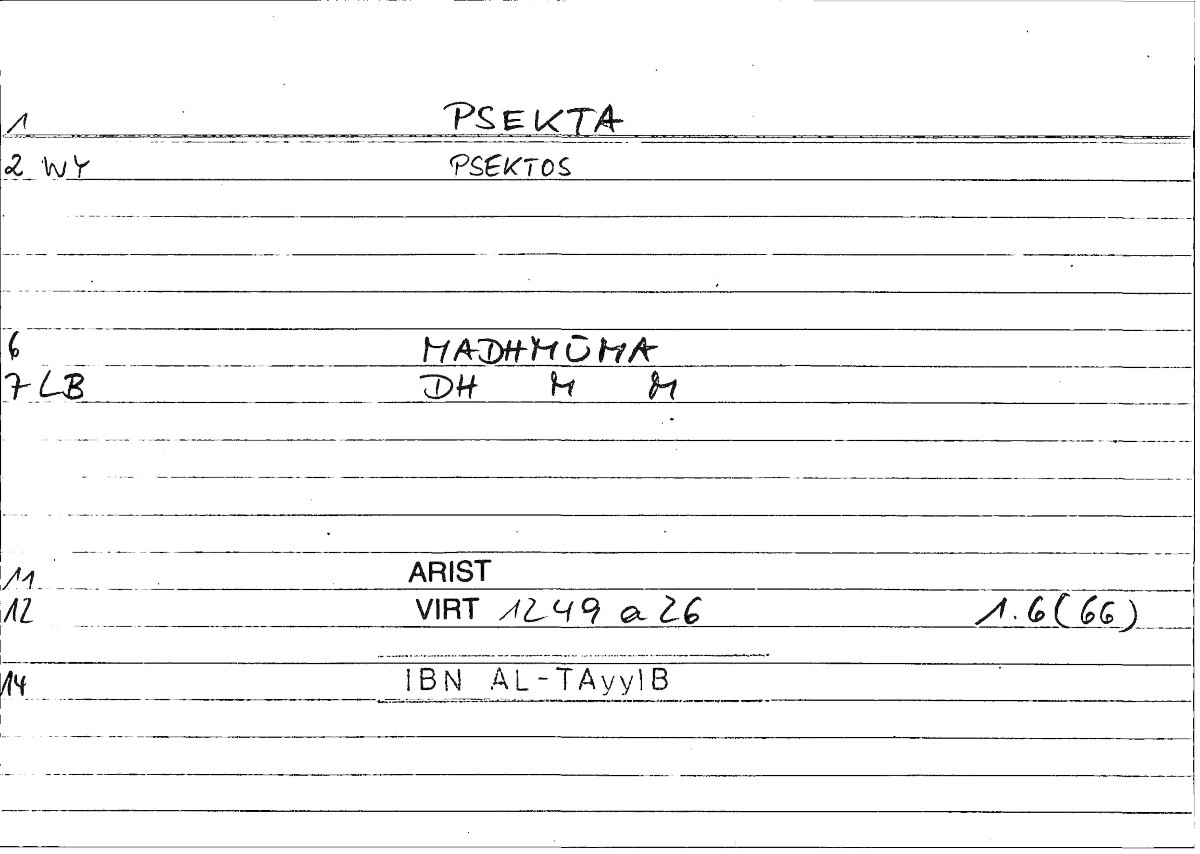 1 PSEKTA
2 WY PSEKTOS
6 MADHMŪMA
7 LB DH M M
11 ARIST
12 VIRT 1249 a 26 1.6(66)
14 IBN AL-TAyyIB